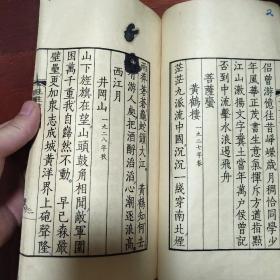 侶曾游憶往昔崢嶸歲月稠恰同學少
年風華正茂書生意氣揮斥方遒指點
江山激揚文字糞土當年萬户侯曾記
否到中流擊水浪遏飛舟
菩薩蠻
黃鶴樓 一九二七年春
茫茫九派流中國沉沉一綫穿南北煙
雨莽蒼蒼龜蛇鎖大江 黃鶴知何去
有游人處把酒酹滔滔心潮逐浪高
西江月
井岡山 一九二八年秋
山下旌旗在望山頭鼓角相聞敵軍圍
困萬千重我自巋然不動 早已森嚴
壁壘更加衆志成城黃洋界上砲聲隆